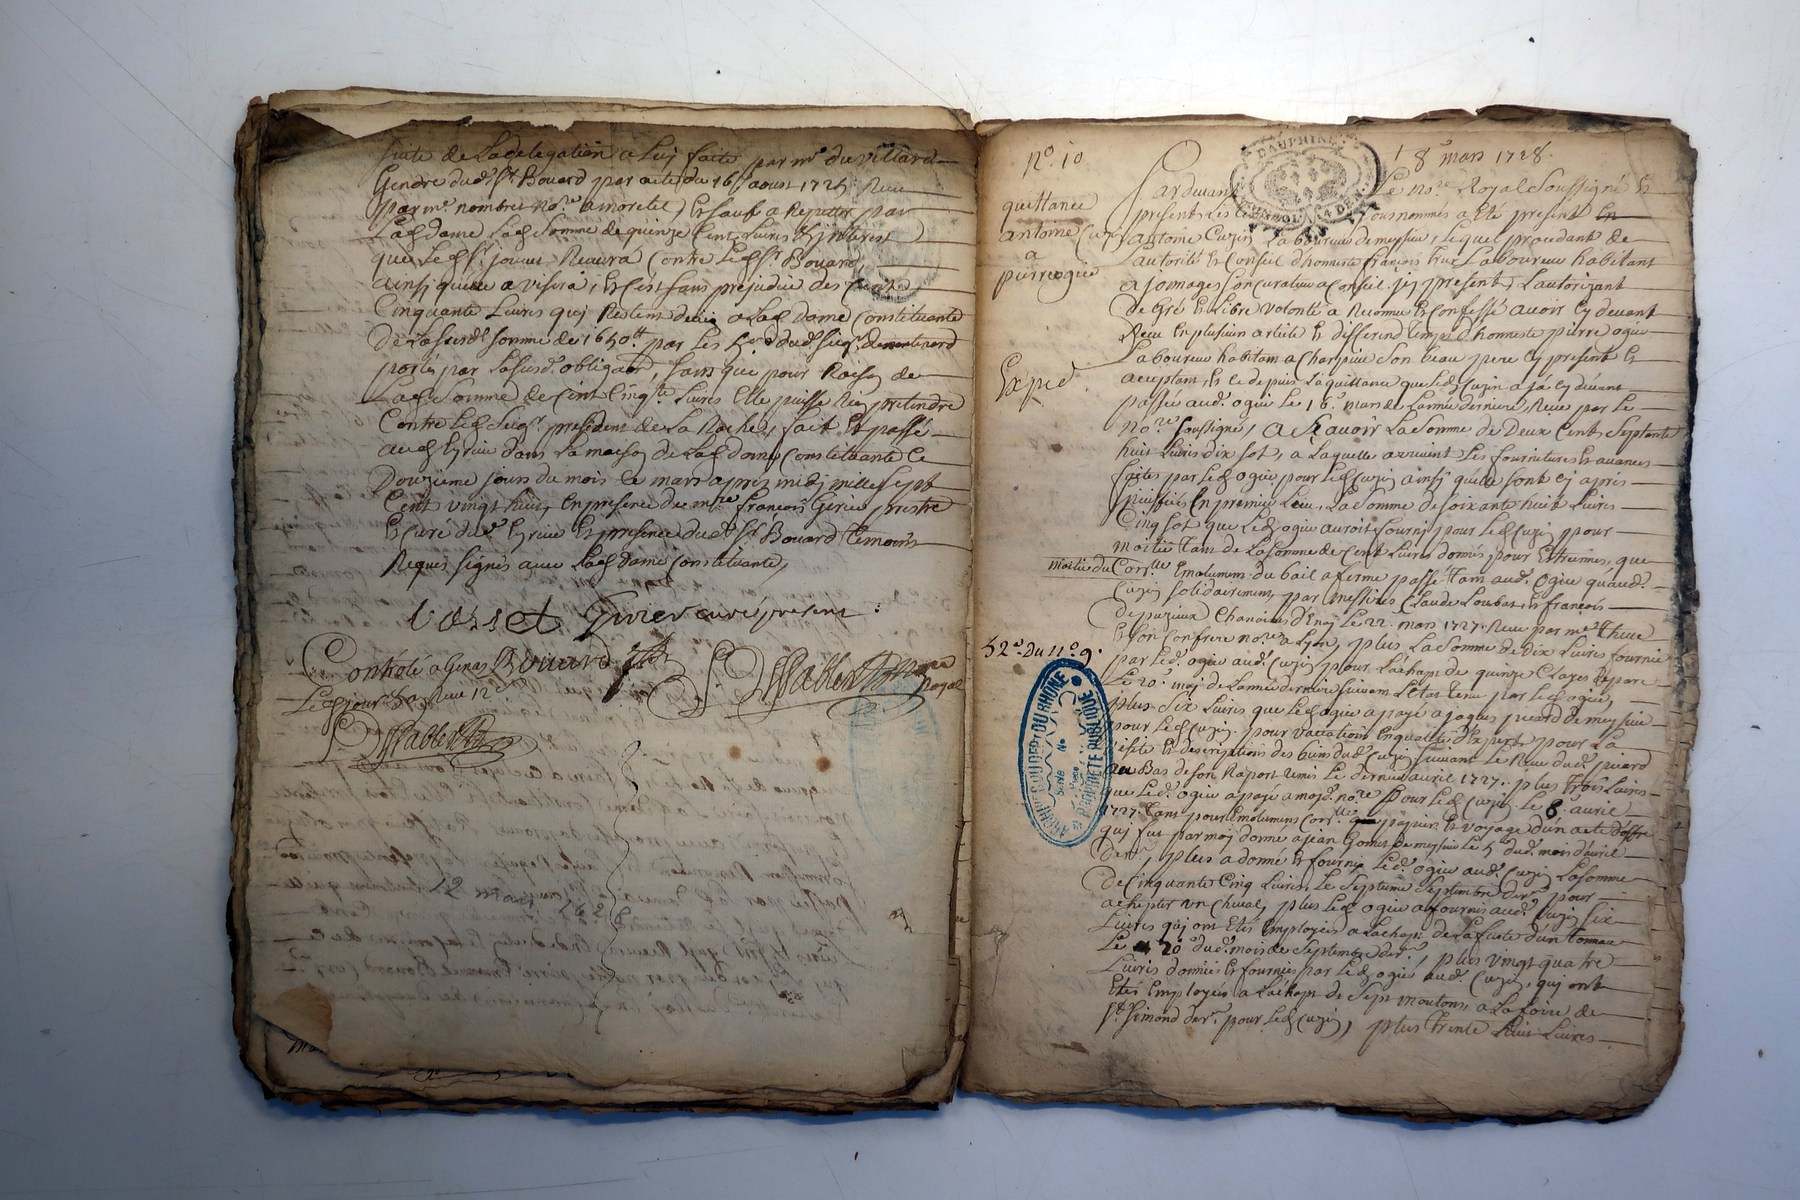 suite de La delegation a Luy faite par mr du villard
Gendre dud. Sr Bouard par acte du 16 aoust 1725 Receu
par me nombret nore a moretel, Et sauf a Repetter par
Lad dame Lad Somme de quinze Cent Livres & jnterest
que Led Sr jouve Neaura Contre Led Sr Bouard,
ainsi quelle avisera, Et c'est sans prejudice des Cent
Cinquante Livres quj Restent deus a Lad dame Constituante
De La susd. somme de 1650tt par les dud. seigr.
portés par La susd. obligaon, sans que pour Raison de
Lad Somme de Cent Cinqte Livres Elle puisse Rien pretendre
Contre Led Seigr president de La Roche, fait Et passé
aud Eyrieu dans La maison de Lad dame Constituante Ce
Douzieme jours du mois de mars apres midj mille sept
Cent vingt huit, En presence de mre françois Girier prestre
Et curé dud. Eyrieu Et presence dud. Sr Bouard temoins
Requis signés avec Lad dame Constituante,
Girier curé present
Controlé a Genas Bouard
Led jour Receu 12s
Royal
12 mars 1628
No. 10
18e mars 1728.
DAUPHINE
quittance
antoine Cuzin
a
pierre ogier
Exped.
Pardevant Le nore Royal Soussigné Et
presents Les temoins sousnommés a Eté present En
antoine Cuzin Laboureur de meysieu, Lequel procedant de
L'autorité Et Conseil d'honneste françois Laboureur habitant
a jonnages son curateur a conseil jcy present L'autorizant
De Gré Et Libre volonté a Reconnu Et Confessé avoir Cy devant
Receu En plusieurs articles Et differend temps d'honneste pierre ogier
Laboureur habitant a Charpieu Son beau pere Cy present Et
acceptant, Et ce depuis La quittance que Led Cuzin a ja Cy devant
passée aud. ogier Le 16e mars de L'année derniere Receu par Le
Nore soussigné, a Scavoir La Somme de Deux Cents Septante
huit Livres dix sol, a Laquelle arrivent Les fournitures Et avances
faites par Led ogier pour Led Cuzin ainsi quelle sont Cy apres
En premier Lieu, La Somme de soixante huit Livres
Cinq sol que Led ogier auroit fourny pour Led Cuzin pour
moitié tant de La somme de Cent Livres donnés pour Estreines, que
moitié du Corlle Emolumens du bail a ferme passé tant aud. Ogier quaud.
Cuzin solidairement, par Messires Claude Loubat Et françois
Depuzieux Chanoines d'Enay Le 22. mars 1727. Receu par me
Et son Confrere nores a Lyon, plus La Somme de Dix Livres fournie
52e. du n.o 9.
par Led. ogier aud. Cuzin pour L'achapt de quinze Clayes de parc
Le 20e may de L'année derniere suivant L'Etat tenu par Led ogier,
plus Six Livres que Led ogier a payé a jaques picard de meysieu
pour Led Cuzin pour vacations En qualité d'Expert pour La
visite Et descriptions des biens dud. Cuzin suivant Le Receu dud. picard
au Bas de son Raport Remis Le dernier avril 1727. plus trois Livres
que Led. ogier a payé a moyd. nore pour Led Cuzin Le 8e avril
1727. tant pour Emolumens Corlle papier Et voyage d'un acte
quj fut par moj donné a jean Gonet de meysieu Le 5e dud. mois d'avril
Der. plus a donné Et fourny Led. ogier aud. Cuzin La somme
de Cinquante Cinq Livres, Le Septieme Septembre Derr. pour
achepter un Cheval, plus Led ogier a fournis aud. Cuzin six
Livres quj ont Etés Employées a L'achapt de La futte d'un tonneau
Le 20 dud. mois de Septembre der. plus vingt quatre
Livres donnéés Et fournies par Led ogier aud. Cuzin, quj ont
Etés Employéés a L'achapt de Sept moutons, a La foire de
St. Simond derr. pour Led Cuzin, plus trente huit Livres
ARCHIVES DU DEPT DU RHONE
PROPRIETE PUBLIQUE